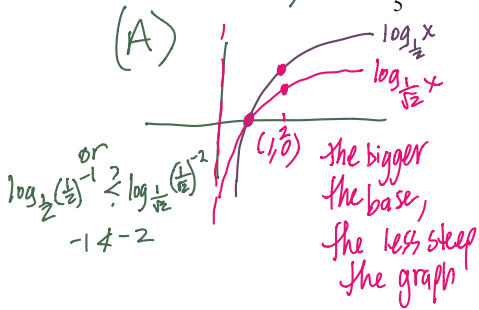 3
(A)
log_{1/2} x
log_{1/√2} x
2
(1,0)
or
log_{1/2} (1/2)^{-1} ?< log_{1/√2} (1/√2)^{-2}
-1 ≮ -2
the bigger
the base,
the less steep
the graph